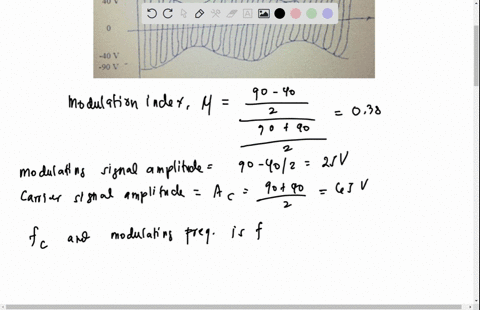 40 V
0
-40 V
-90 V
Modulation Index, μ = \frac{\frac{90-40}{2}}{\frac{90+90}{2}} = 0.38
modulating signal amplitude = 90-40/2 = 25V
Carrier signal amplitude = A_c = \frac{90+40}{2} = 65 V
f_c and modulating freq. is f